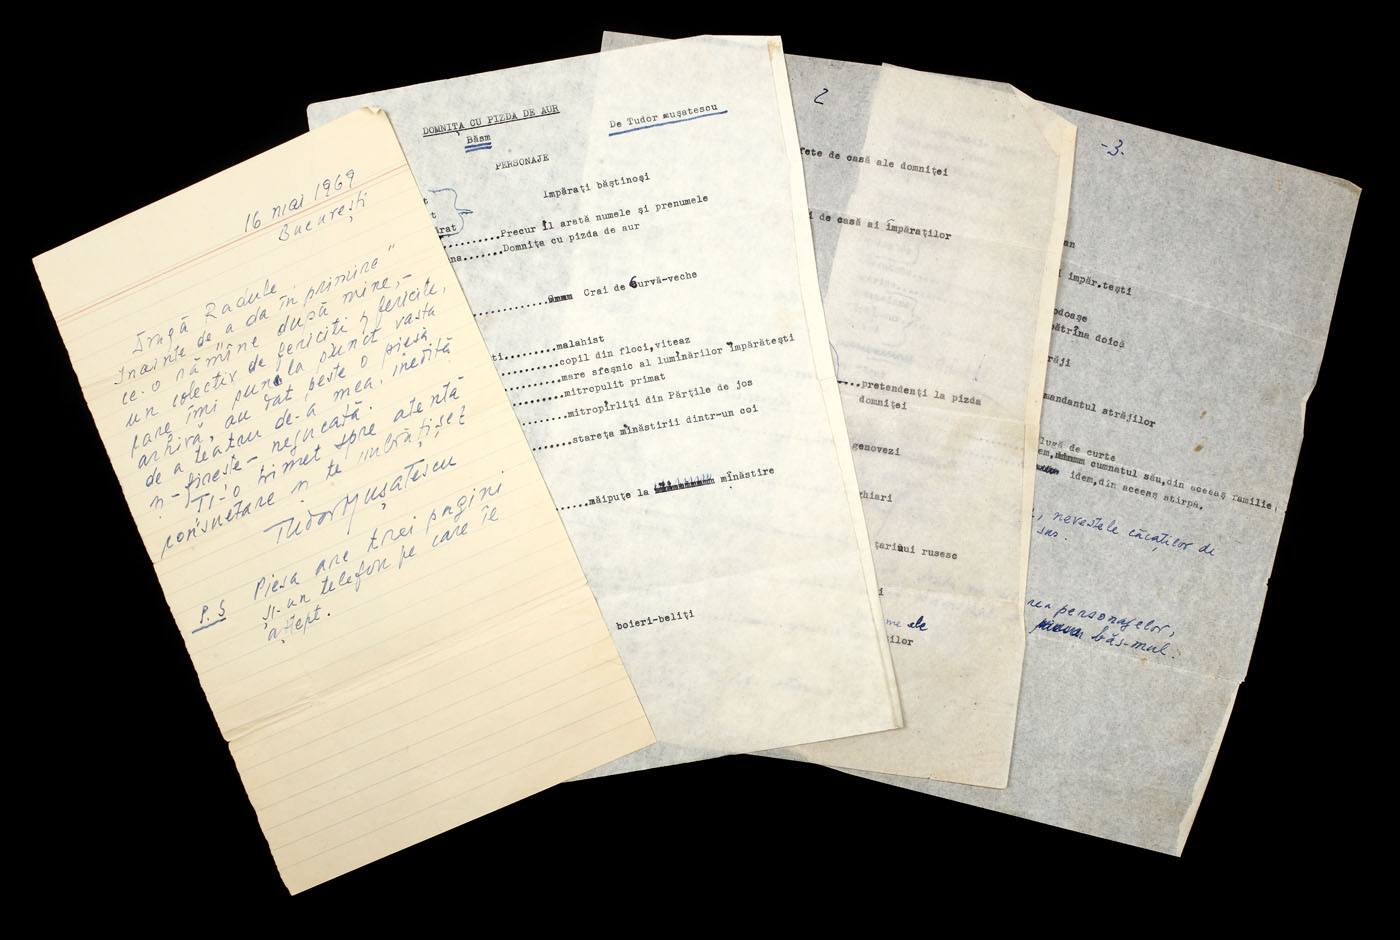 16 mai 1969
București
Dragă Radule,
Înainte de „a da în primire"
ce-o rămîne după mine,-
un colectiv de fericiți și fericite,
care îmi pun la punct vasta
arhivă, au dat peste o piesă
de a teatru de-a mea, inedită
și-firește-nejucată.
Ți-o trimet spre atentă
consultare și te îmbrățișez
Tudor Mușatescu
P.S Piesa are trei pagini
și-un telefon pe care îl
aștept.
DOMNIȚA CU PIZDA DE AUR
Băsm
De Tudor Mușatescu
PERSONAJE
Împărați băștinoși
..........Precur îl arată numele și prenumele
na.......Domnița cu pizda de aur
............ Crai de Curvă-veche
ti.........malahist
..........copil din floci,viteaz
..........mare sfeșnic al luminărilor împărătești
..........mitropulit primat
..........mitropîrliți din Părțile de jos
..........stareța mînăstirii dintr-un coi
......măipuțe la mînăstire
boieri-beliți
2
fete de casă ale domniței
i de casă ai împăraților
....pretendenți la pizda
domniței
genovezi
ghiari
țariului rusesc
i
me ale
ților
-3-
an
i împăr.tești
odoașe
bătrîna doică
răji
mandantul străjilor
lugă de curte
em, cumnatul său,din aceeaș familie,
idem,din aceeaș stirpă.
, nevestele căcaților de
sus.
rea personajelor,
băs-mul.